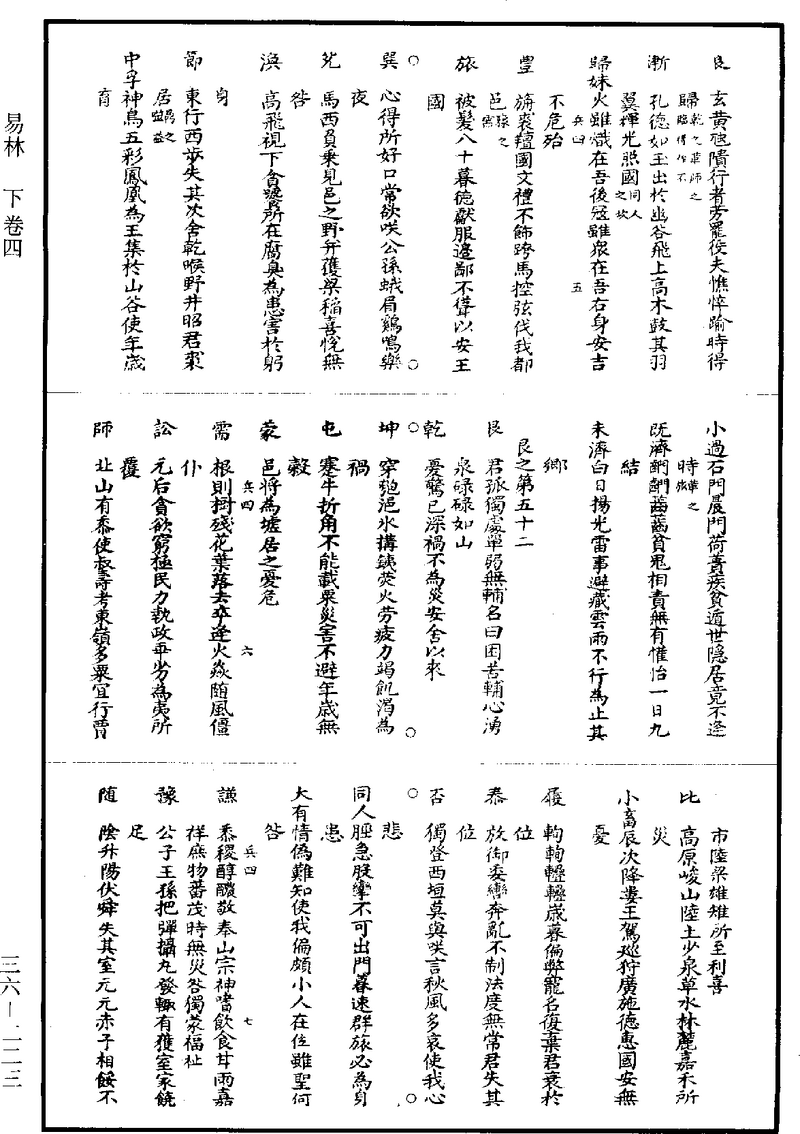 易林　下卷四
三六—二二三
艮　玄黄虺隤行者勞罷役夫憔悴踰時得
歸乾之革師之臨傅作不
漸　孔德如玉出於幽谷飛上高木鼓其羽
翼輝光照國同人之坎
歸妹火雖熾在吾後寇雖衆在吾右身安吉
不危殆
兵四　五
豊　旃裘羶國文禮不飾跨馬控弦伐我都
邑
旅　被髮八十暮徳獻服邊鄙不聳以安王
國
巽　心得所好口常欲咲公孫蛾眉鷄鳴樂
夜
兊　馬西員乗見邑之野并獲粱稻喜悅無
咎
渙　高飛視下貪饕所在腐臭為患害於躬
身
節　東行西步失其次舍乾喉野井昭君喪
居
中孚神鳥五彩鳳凰為王集於山谷使年歲
育
小過石門晨門荷蕢疾貧遁世隠居竟不逢
時
既濟齟齟齧齧貧鬼相責無有懽怡一日九
結
未濟白日揚光雷車避藏雲雨不行為止其
鄉
艮之第五十二
艮　君孤獨處單弱無輔名曰困苦輔心湧
泉碌碌如山
乾　憂驚已深禍不為災安全以來
坤　穿匏浥水搆鐵熒火勞疲力竭飢渴為
禍
屯　蹇牛折角不能載粟災害不避年歲無
穀
蒙　邑將為墟居之憂危
兵四　六
需　根刖樹殘花葉落去卒逢火焱随風僵
仆
訟　元后貪欲窮極民力執政乖劣為夷所
覆
師　北山有棗使叔壽考東嶺多粟宜行賈
市陸梁雄雉所至利喜
比　高原峻山陸土少泉草水林麓嘉禾所
災
小畜辰次降婁王駕巡狩廣施德惠國安無
憂
履　軥軥轣轣歲暮偏弊寵名復棄君衰於
位
泰　放御委轡奔亂不制法度無常君失其
位
否　獨登西垣莫與咲言秋風多哀使我心
悲
同人脛急股攣不可出門暮速群旅必為身
患
大有情偽難知使我偏頗小人在位雖聖何
咎
兵四　七
謙　黍稷醇醲敬奉山宗神嗜飲食甘雨嘉
祥庶物蕃茂時無災咎獨蒙福祉
豫　公子王孫把彈攝丸發輒有獲室家饒
足
随　陰升陽伏舜失其室元元赤子相餧不